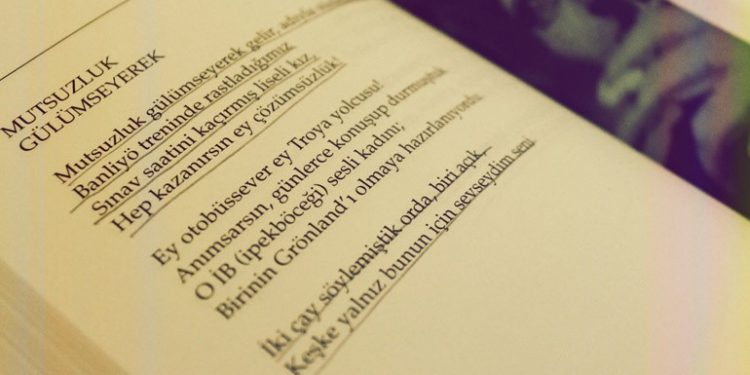 MUTSUZLUK
GÜLÜMSEYEREK
Mutsuzluk gülümseyerek gelir, adıyla
Banliyö treninde rastladığımız
Sınav saatini kaçırmış liseli kız,
Hep kazanırsın ey çözümsüzlük!
Ey otobüssever ey Troya yolcusu!
Anımsarsın, günlerce konuşup durmuştuk
O İB (ipekböceği) sesli kadını;
Birinin Grönland'ı olmaya hazırlanıyordu
İki çay söylemiştik orda, biri açık,
Keşke yalnız bunun için sevseydim seni